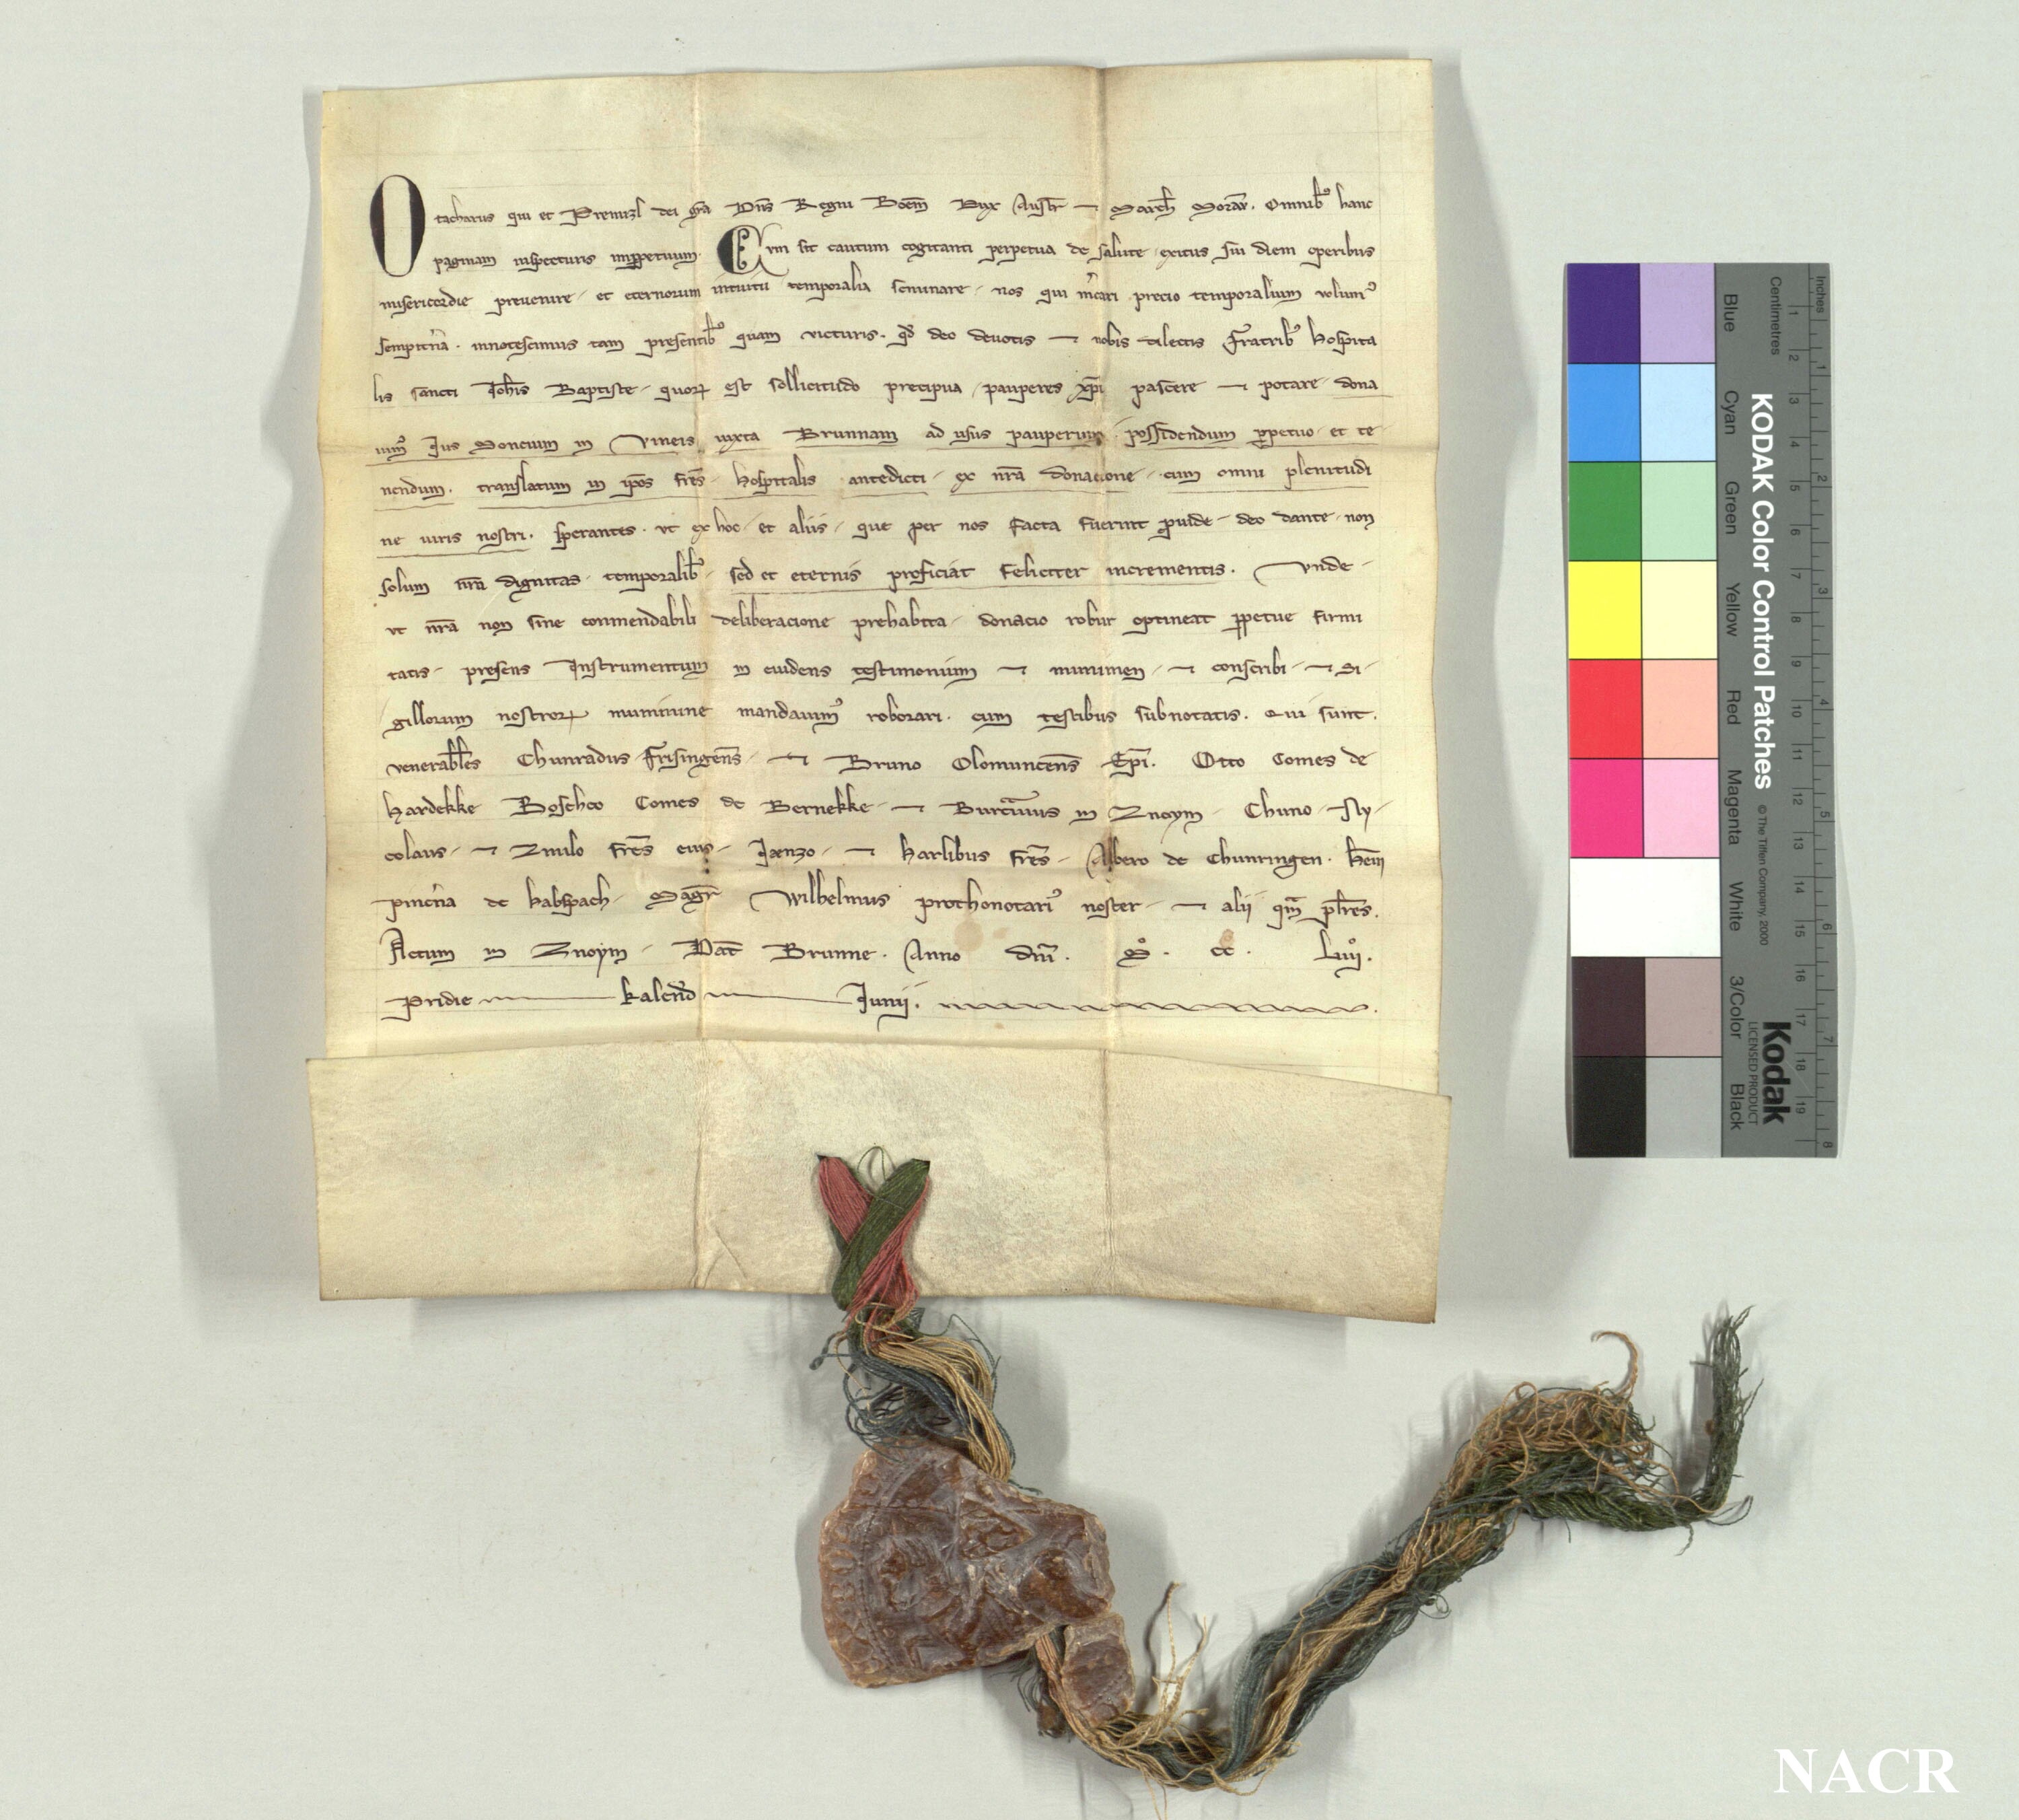 Otacharus qui et Premizl dei gr̄a Dn̄s Regni Boem̄ Dux Austr̄ ⁊ March̄ Morau̅. Omnib⁹ hanc
paginam inspecturis imꝑpetuum. Cum sit cautum cogitanti perpetua de salute exitus sui diem operibus
misericordie preuenire et eternorum intuitu temporalia seminare nos qui m̄cari precio temporalium volum⁹
sempit̄na. innotescimus tam presentib⁹ quam victuris. qd̄ deo deuotis ⁊ nobis dilectis Fratrib⁹ Hospita
lis sancti Joh̄is Baptiste quoꝝ est sollicitudo precipua pauperes xp̄i pascere ⁊ potare dona
uim⁹ Jus Moncium in Vineis iuxta Brunnam ad usus pauperum possidendum ꝑpetuo et te
nendum. translatum in ip̄os fr̄es Hospitalis antedicti ex nr̄a donacione cum omni plenitudi
ne iuris nostri. sperantes. vt ex hoc et aliis que per nos facta fuerint ꝓuide deo dante non
solum nr̄a dignitas temporalib⁹ sed et eternis proficiat feliciter incrementis. Vnde
vt nr̄a non sine conmendabili deliberacione prehabita donacio robur optineat ꝑpetue firmi
tatis presens Instrumentum in euidens testimonium ⁊ munimen ⁊ conscribi ⁊ Si
gillorum nostroꝝ munimine mandauim⁹ roborari. cum testibus subnotatis. Qui sunt.
venerabl̄es Chunradus Frisingen̄s ⁊ Bruno Olomuncen̄s Ep̄i. Otto Comes de
Hardekke Boscheo Comes de Bernekke ⁊ Burc̄uius in Znoym Chuno Ny
colaus ⁊ Zmilo fr̄es eius Jaenzo ⁊ Harlibus fr̄es Albero de Chunringen. Hein̄
pinc̄na de Habspach Magr̄ Wilhelmus prothonotari⁹ noster ⁊ alii qm̄ pl̄res.
Actum in Znoym Dat̄ Brunne. Anno dn̄i. M°. cc. Lvij°.
Pridie kalend̄ Junij.
Inches
Centimetres
Blue Cyan Green Yellow Red Magenta White 3/Color Black
KODAK Color Control Patches © The Tiffen Company, 2000
Kodak
LICENSED PRODUCT
1 2 3 4 5 6 7 8
1 2 3 4 5 6 7 8 9 10 11 12 13 14 15 16 17 18 19
NACR